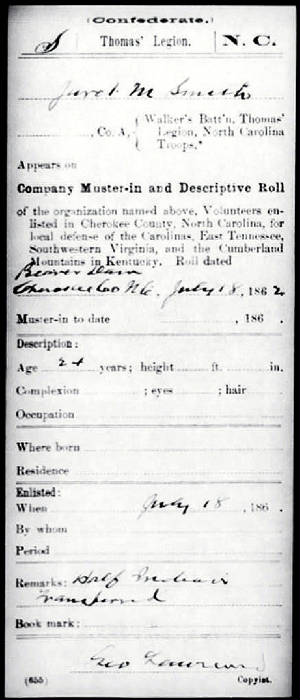 (Confederate.)
S Thomas' Legion. N. C.
Jaret M Smith
, Co. A, { Walker's Batt'n, Thomas' Legion, North Carolina Troops.*
Appears on
Company Muster-in and Descriptive Roll
of the organization named above, Volunteers en-
listed in Cherokee County, North Carolina, for
local defense of the Carolinas, East Tennessee,
Southwestern Virginia, and the Cumberland
Mountains in Kentucky. Roll dated
Beaver Dam
Cherokee Co NC. July 18, 1862.
Muster-in to date , 186 .
Description:
Age 24 years; height ft. in.
Complexion ; eyes ; hair
Occupation
Where born
Residence
Enlisted:
When July 18, 186 .
By whom
Period
Remarks: Half Indian
Transferred
Book mark:
Geo
(655) Copyist.